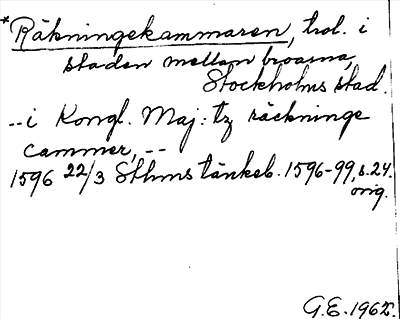 *Räkningekammaren, trol. i
staden mellan broarna,
Stockholms stad.
--i Kongl. Maj:tz räckninge
cammer, --
1596 22/3 Sthms tänkeb. 1596-99, s. 24.
orig.
G.E. 1962.